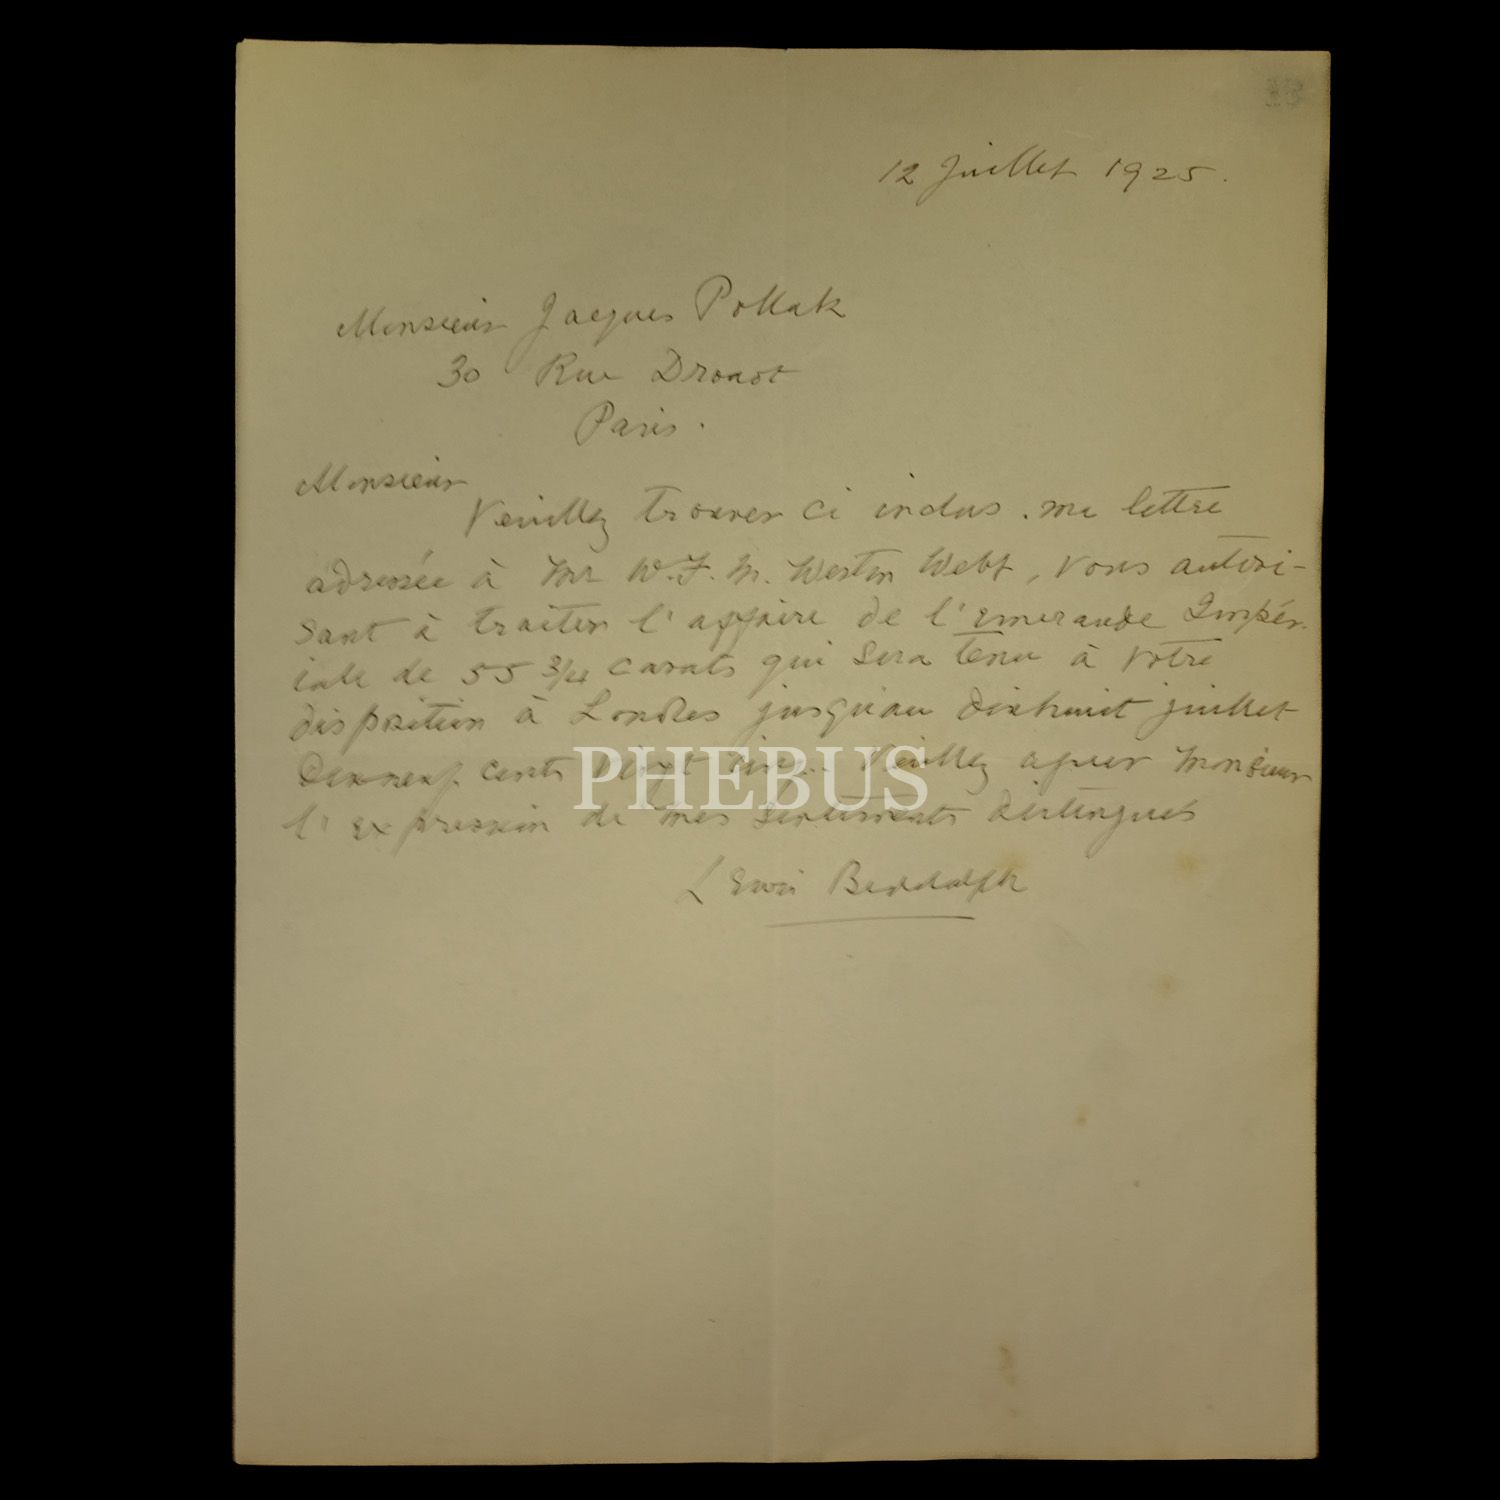 12 Juillet 1925.
Monsieur Jacques Pollak
30 Rue Drouot
Paris.
Monsieur
Veuillez trouver ci inclus. ma lettre
adressée à Mr W. F. M. Weston Webb, vous autori-
sant à traiter l'affaire de l'Emeraude Impér-
iale de 55 3/4 carats qui sera tenu à votre
disposition à Londres jusqu'au dixhuit juillet
dixneuf cents vingt cinq. Veuillez agreer Monsieur
l'expression de mes sentiments distingues
Lewis Biddolph
PHEBUS